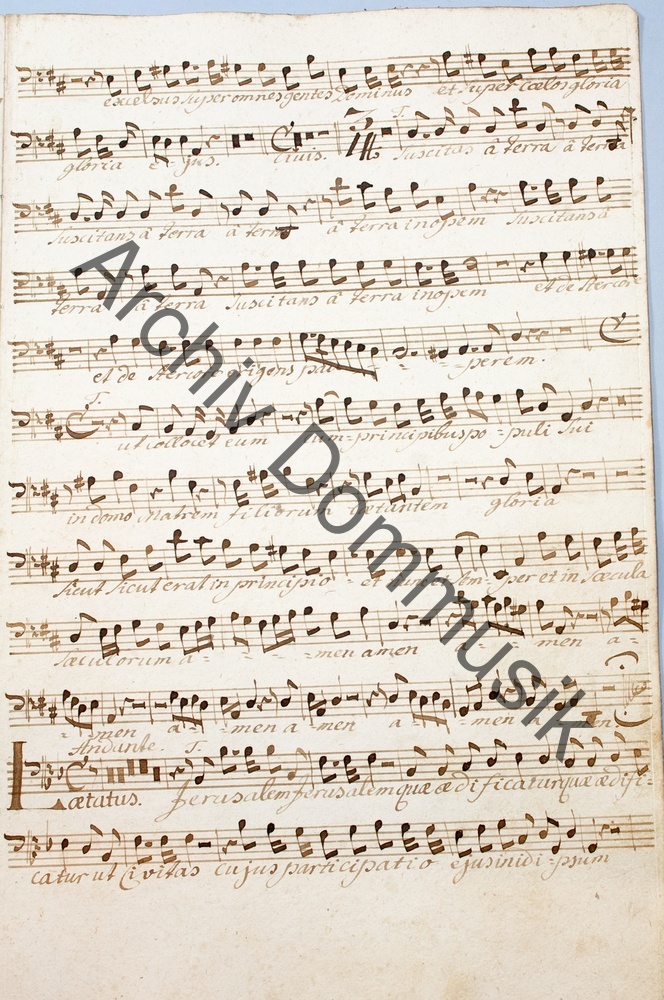 excelsus super omnes gentes Dominus et super Coelos gloria
gloria e - jus. Civis. T. Suscitans â terra â terra
Suscitans â terra â terra â terra inopem Suscitans â
terra â terra Suscitans â terra inopem et de Stercore
et de Stercore erigens pau - - perem.
T.
ut collocet eum cum - principibus po - puli sui
in domo Matrem filiorum laetantem gloria
sicut sicut erat in principio - et nunc et sem - per et in saecula
saeculorum a - - - men amen a - men a -
- men a - men a - men a - men a men
Andante. T.
Laetatus. Jerusalem Jerusalem quae aedificatur quae aedifi -
catur ut Civitas cujus participatio ejus in idi - psum
Archiv Dommusik